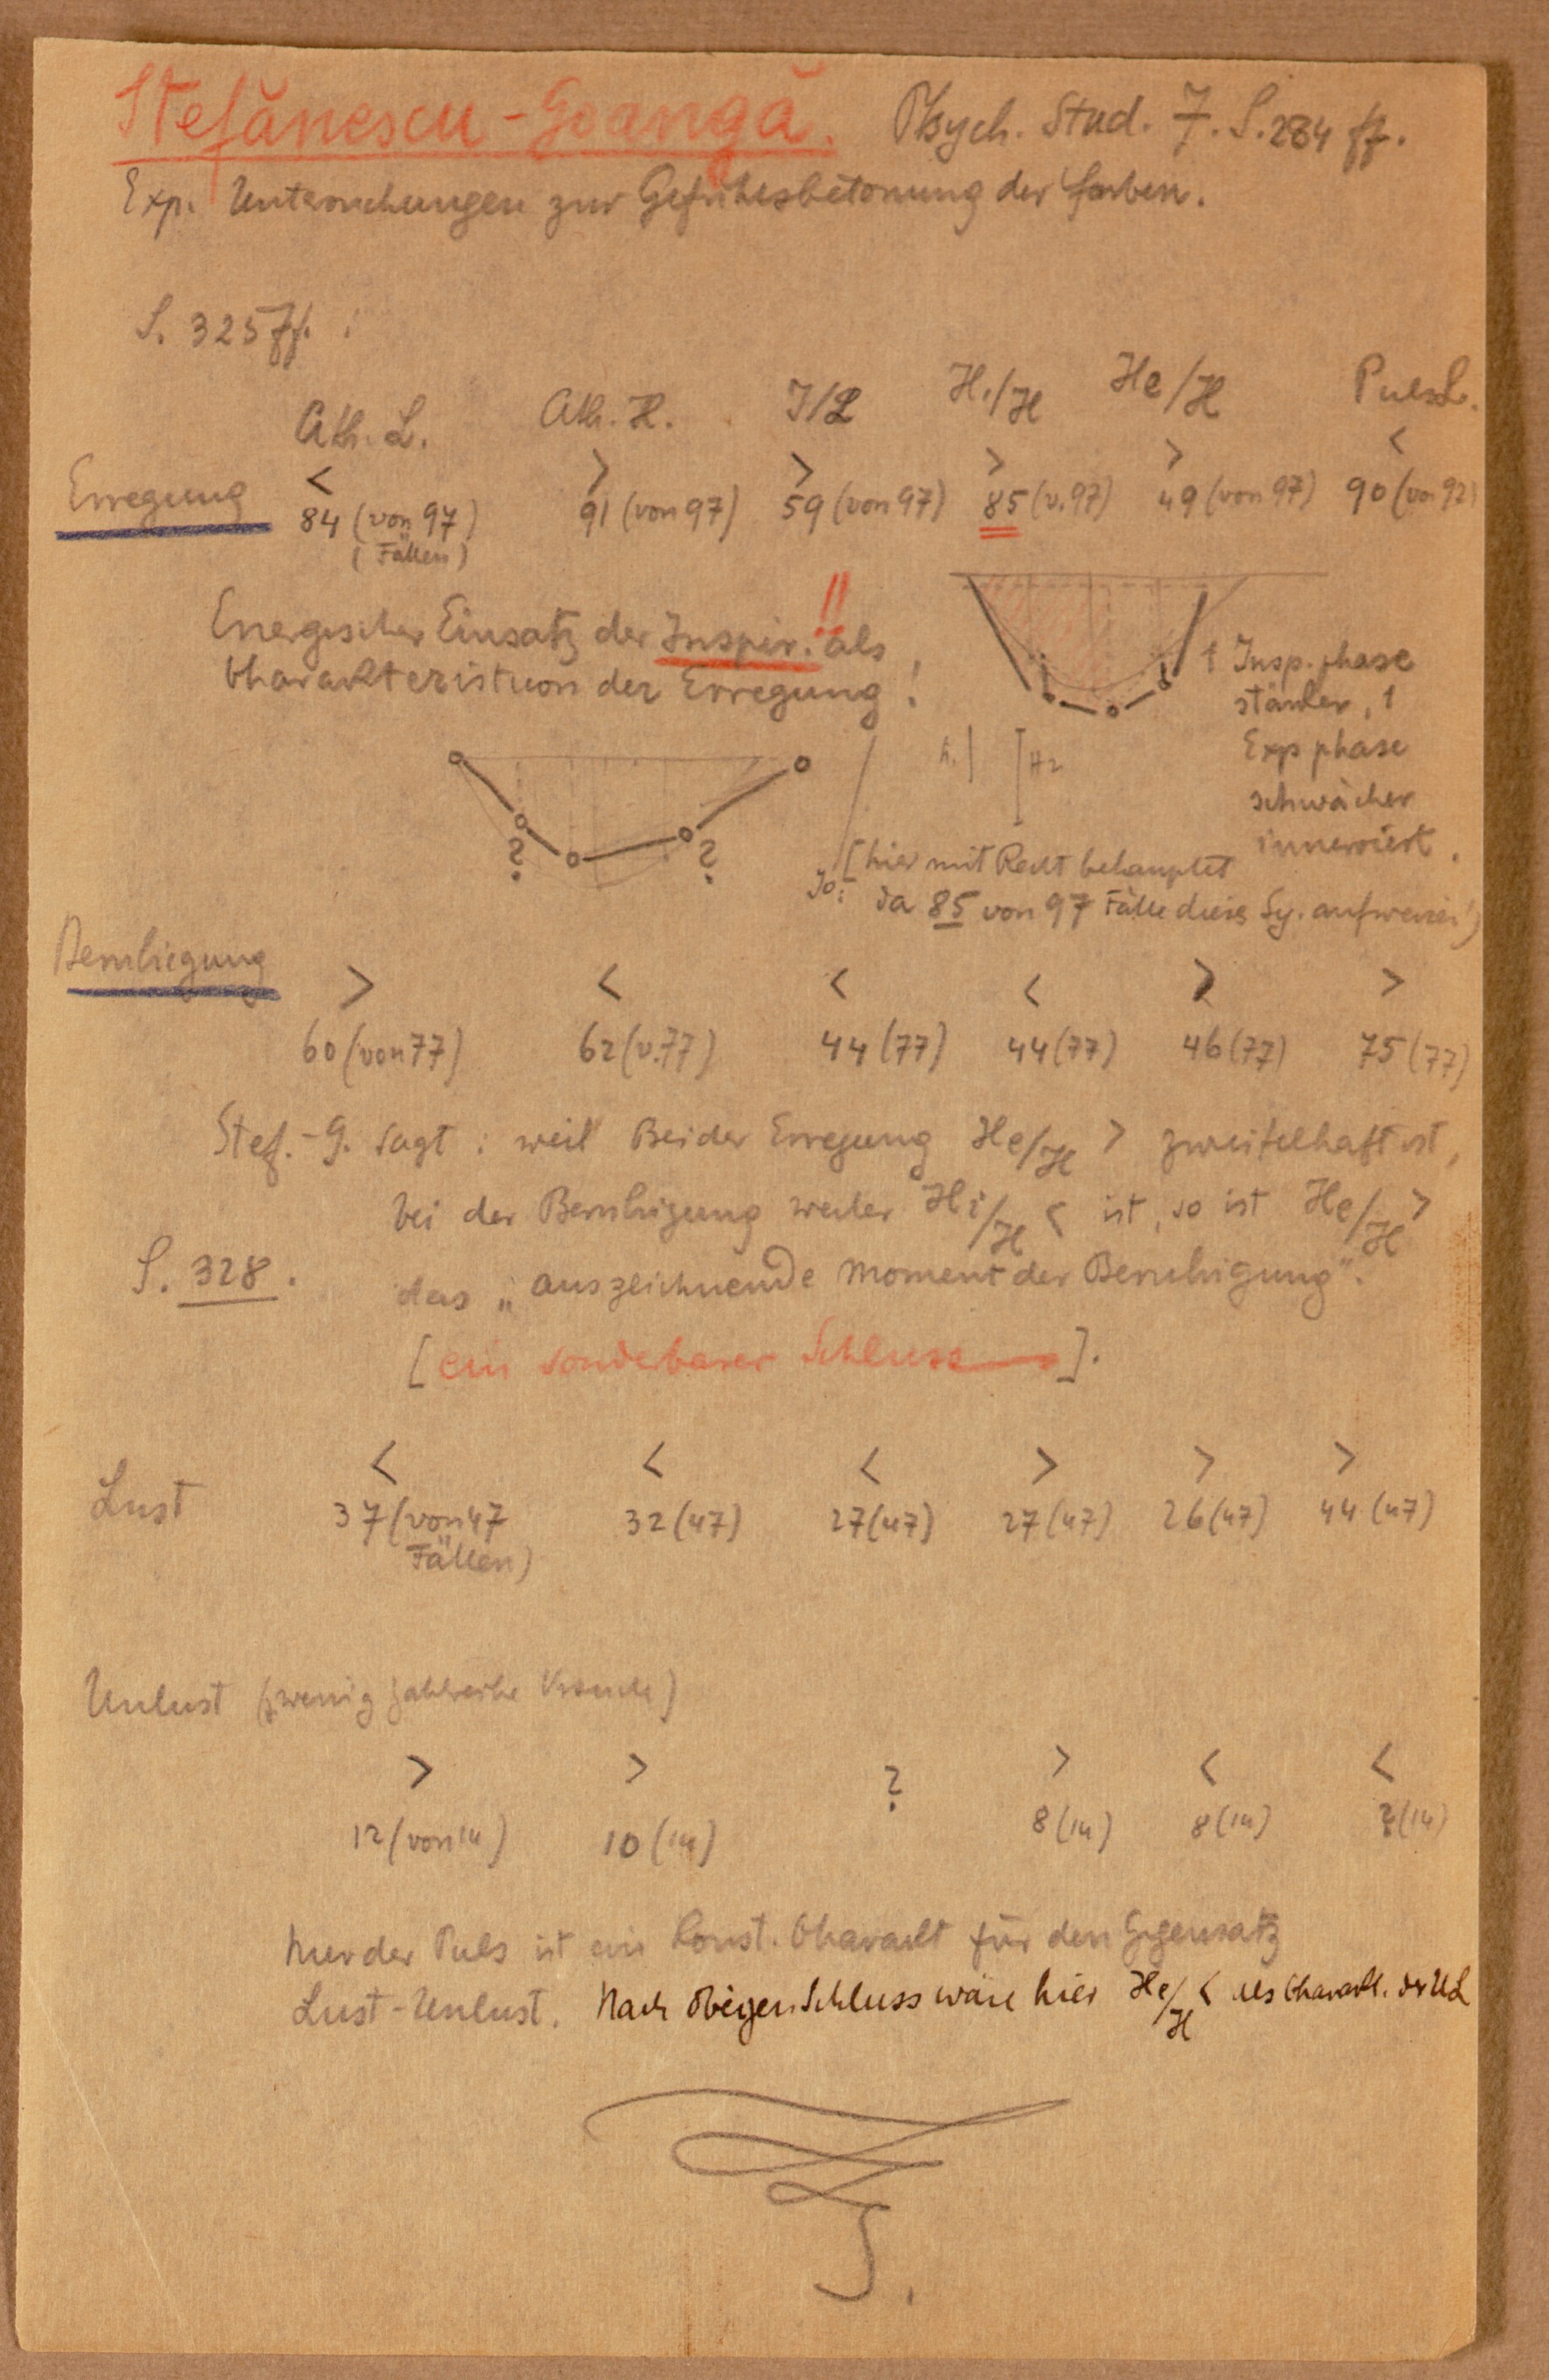 Stefănescu-Goangă. Psych. Stud. 7. S. 284 ff.
Exp. Untersuchungen zur Gefühlsbetonung der Farben.
S. 325 ff. :
Ath. L. Ath. H. J/L Hi/H He/H Puls L.
Erregung < > > > > <
84 (von 97) 91 (von 97) 59 (von 97) 85 (v. 97) 49 (von 97) 90 (von 97)
(Fällen)
Energischer Einsatz der Inspir.!! als
Charakteristicon der Erregung!
1 Insp. phase
stärker, 1
Exp phase
schwächer
innerviert.
? ?
[hier mit Recht behauptet
da 85 von 97 Fälle dieses Sy. aufweisen!)
Beruhigung > < < < > >
60 (von 77) 62 (v. 77) 44 (77) 44 (77) 46 (77) 75 (77)
Stef.-G. sagt : weil Bei der Erregung He/H > zweifelhaft ist,
bei der Beruhigung weder Hi/H < ist, so ist He/H >
S. 328. das „auszeichnende Moment der Beruhigung".
[ein sonderbarer Schluss].
< < < > > >
Lust 37 (von 47 32 (47) 27 (47) 27 (47) 26 (47) 44 (47)
Fällen)
Unlust (wenig zahlreiche Versuche)
> > ? > < <
12 (von 14) 10 (14) 8 (14) 8 (14) (14)
Nur der Puls ist ein Const. Charakt für den Gegensatz
Lust-Unlust. Nach obigen Schluss wäre hier He/H < als Charakt. der UL